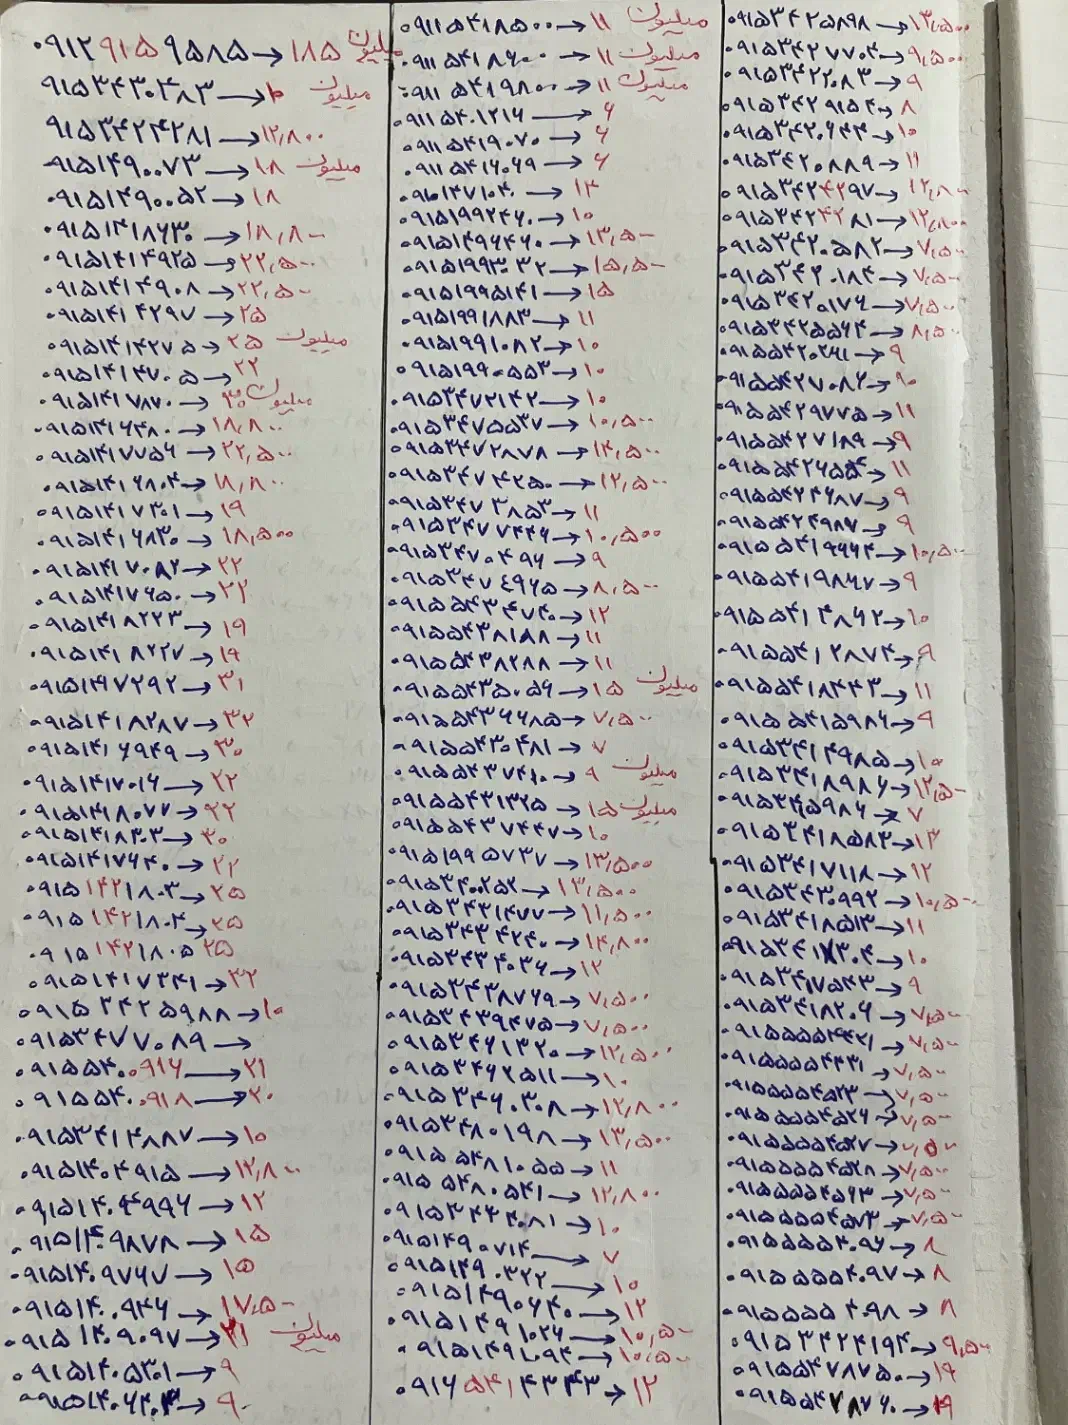 ۰۹۱۲۹۱۵۹۵۸۵ → ۱۸۵ میلیون
۹۱۵۳۴۳۰۴۸۳ → ۱۰ میلیون
۹۱۵۳۴۲۴۲۸۱ → ۱۲,۸۰۰
۰۹۱۵۱۴۹۰۰۷۳ → ۱۸ میلیون
۰۹۱۵۱۴۹۰۰۵۲ → ۱۸
۰۹۱۵۱۴۱۸۶۳۰ → ۱۸,۸۰۰
۰۹۱۵۱۴۱۴۹۲۵ → ۲۲,۵۰۰
۰۹۱۵۱۴۱۴۹۰۸ → ۲۲,۵۰۰
۰۹۱۵۱۴۱۴۲۹۷ → ۲۵
۰۹۱۵۱۴۱۴۲۷۵ → ۲۵ میلیون
۰۹۱۵۱۴۱۴۷۰۵ → ۲۲
۰۹۱۵۱۴۱۷۸۷۰ → ۳۰ میلیون
۰۹۱۵۱۴۱۶۴۸۰ → ۱۸,۸۰۰
۰۹۱۵۱۴۱۷۷۵۶ → ۲۲,۵۰۰
۰۹۱۵۱۴۱۶۸۰۴ → ۱۸,۸۰۰
۰۹۱۵۱۴۱۷۳۰۱ → ۱۹
۰۹۱۵۱۴۱۶۸۳۰ → ۱۸,۵۰۰
۰۹۱۵۱۴۱۷۰۸۲ → ۲۲
۰۹۱۵۱۴۱۷۶۵۰ → ۲۲
۰۹۱۵۱۴۱۸۲۲۳ → ۱۹
۰۹۱۵۱۴۱۸۲۲۷ → ۱۹
۰۹۱۵۱۴۱۷۲۹۲ → ۳۱
۰۹۱۵۱۴۱۸۲۸۷ → ۳۲
۰۹۱۵۱۴۱۶۹۴۹ → ۳۰
۰۹۱۵۱۴۱۷۰۱۶ → ۲۲
۰۹۱۵۱۴۱۸۰۷۷ → ۲۲
۰۹۱۵۱۴۱۸۳۰۳ → ۲۰
۰۹۱۵۱۴۱۷۶۴۰ → ۲۲
۰۹۱۵۱۴۲۱۸۰۳ → ۲۵
۰۹۱۵۱۴۲۱۸۰۴ → ۲۵
۰۹۱۵۱۴۲۱۸۰۵ ۲۵
۰۹۱۵۱۴۱۷۲۴۱ → ۲۲
۰۹۱۵۳۴۲۵۹۸۸ → ۱۰
۰۹۱۵۳۴۷۷۰۸۹ →
۰۹۱۵۵۴۰۰۹۱۶ → ۲۱
۰۹۱۵۵۴۰۰۹۱۸ → ۲۰
۰۹۱۵۳۴۱۴۸۸۷ → ۱۰
۰۹۱۵۱۴۰۴۹۱۵ → ۱۲,۸۰۰
۰۹۱۵۱۴۰۴۹۹۶ → ۱۲
۰۹۱۵۱۴۰۹۸۷۸ → ۱۵
۰۹۱۵۱۴۰۹۷۶۷ → ۱۵
۰۹۱۵۱۴۰۰۹۴۶ → ۱۷,۵۰۰
۰۹۱۵۱۴۰۹۰۹۷ → ۲۱ میلیون
۰۹۱۵۱۴۰۵۳۰۱ → ۹
۰۹۱۵۱۴۰۶۲۰۳ → ۹
۰۹۱۱۵۴۱۸۵۰۰ → ۱۱ میلیون
۰۹۱۱۵۴۱۸۶۰۰ → ۱۱ میلیون
۰۹۱۱۵۴۱۹۸۰۰ → ۱۱ میلیون
۰۹۱۱۵۴۰۱۲۱۶ → ۶
۰۹۱۱۵۴۱۹۰۷۰ → ۶
۰۹۱۱۵۴۱۶۰۶۹ → ۶
۰۹۱۰۱۴۷۱۰۴۰ → ۱۴
۰۹۱۵۱۹۹۲۴۶۰ → ۱۰
۰۹۱۵۱۴۹۶۴۶۰ → ۱۳,۵۰۰
۰۹۱۵۱۹۹۳۰۳۲ → ۱۵,۵۰۰
۰۹۱۵۱۹۹۵۱۴۱ → ۱۵
۰۹۱۵۱۹۹۱۸۸۳ → ۱۱
۰۹۱۵۱۹۹۱۰۸۲ → ۱۰
۰۹۱۵۱۹۹۰۵۵۳ → ۱۰
۰۹۱۵۳۴۷۲۱۴۲ → ۱۰
۰۹۱۵۳۴۷۵۵۳۷ → ۱۰,۵۰۰
۰۹۱۵۳۴۷۲۸۷۸ → ۱۴,۵۰۰
۰۹۱۵۳۴۷۴۲۵۰ → ۱۲,۵۰۰
۰۹۱۵۳۴۷۳۸۵۳ → ۱۱
۰۹۱۵۳۴۷۷۴۴۶ → ۱۰,۵۰۰
۰۹۱۵۳۴۷۰۴۹۶ → ۹
۰۹۱۵۳۴۷۴۹۶۵ → ۸,۵۰۰
۰۹۱۵۵۴۳۴۷۴۰ → ۱۲
۰۹۱۵۵۴۳۸۱۸۸ → ۱۱
۰۹۱۵۵۴۳۸۲۸۸ → ۱۱
۰۹۱۵۵۴۳۵۰۵۶ → ۱۵ میلیون
۰۹۱۵۵۴۳۶۶۸۵ → ۷,۵۰۰
۰۹۱۵۵۴۳۰۴۸۱ → ۷
۰۹۱۵۵۴۳۷۴۱۰ → ۹ میلیون
۰۹۱۵۵۴۳۱۳۲۵ → ۱۵ میلیون
۰۹۱۵۵۴۳۷۴۴۷ → ۱۰
۰۹۱۵۱۹۹۵۷۳۷ → ۱۳,۵۰۰
۰۹۱۵۳۴۰۰۲۵۲ → ۱۳,۵۰۰
۰۹۱۵۳۴۳۱۴۷۷ → ۱۱,۵۰۰
۰۹۱۵۳۴۳۴۲۴۰ → ۱۴,۸۰۰
۰۹۱۵۳۴۳۴۰۳۶ → ۱۲
۰۹۱۵۳۴۳۸۷۶۹ → ۷,۵۰۰
۰۹۱۵۳۴۳۹۴۷۵ → ۷,۵۰۰
۰۹۱۵۳۴۶۱۳۲۰ → ۱۲,۵۰۰
۰۹۱۵۳۴۶۲۵۱۱ → ۱۰
۰۹۱۵۳۴۶۰۳۰۸ → ۱۲,۸۰۰
۰۹۱۵۳۴۸۰۱۹۸ → ۱۳,۵۰۰
۰۹۱۵۵۴۸۱۰۵۵ → ۱۱
۰۹۱۵۵۴۸۰۵۴۱ → ۱۲,۸۰۰
۰۹۱۵۳۴۴۴۰۸۱ → ۱۰
۰۹۱۵۱۴۹۰۷۱۴ → ۷
۰۹۱۵۱۴۹۰۳۲۲ → ۱۰
۰۹۱۵۱۴۹۰۶۴۰ → ۱۲
۰۹۱۵۱۴۹۱۰۲۶ → ۱۰,۵۰۰
۰۹۱۵۱۴۹۱۰۹۴ → ۱۰,۵۰۰
۰۹۱۶۵۴۱۴۳۴۳ → ۱۲
۰۹۱۵۳۴۲۵۸۹۸ → ۱۳,۵۰۰
۰۹۱۵۳۴۲۷۷۰۴ → ۹,۵۰۰
۰۹۱۵۳۴۲۲۰۸۳ → ۹
۰۹۱۵۳۴۲۹۱۵۴ → ۸
۰۹۱۵۳۴۲۰۶۴۴ → ۱۰
۰۹۱۵۳۴۲۰۸۸۹ → ۱۱
۰۹۱۵۳۴۲۴۲۹۷ → ۱۲,۸۰۰
۰۹۱۵۳۴۲۴۲۸۱ → ۱۲,۸۰۰
۰۹۱۵۳۴۲۰۵۸۲ → ۷,۵۰۰
۰۹۱۵۳۴۲۰۱۸۴ → ۷,۵۰۰
۰۹۱۵۳۴۲۰۱۷۶ → ۷,۵۰۰
۰۹۱۵۳۴۲۵۵۶۴ → ۸,۵۰۰
۰۹۱۵۵۴۲۰۲۶۱ → ۹
۰۹۱۵۵۴۲۷۰۸۶ → ۹۰
۰۹۱۵۵۴۲۹۷۷۵ → ۱۱
۰۹۱۵۵۴۲۷۱۸۹ → ۹
۰۹۱۵۵۴۲۶۵۵۴ → ۱۱
۰۹۱۵۵۴۲۴۶۸۷ → ۹
۰۹۱۵۵۴۲۴۹۸۷ → ۹
۰۹۱۵۵۴۱۹۶۶۴ → ۱۰,۵۰۰
۰۹۱۵۵۴۱۹۸۶۷ → ۹
۰۹۱۵۵۴۱۴۸۶۲ → ۱۰
۰۹۱۵۵۴۱۲۸۷۴ → ۹
۰۹۱۵۵۴۱۸۴۴۳ → ۱۱
۰۹۱۵۵۴۱۵۹۸۶ → ۹
۰۹۱۵۳۴۱۴۹۸۵ → ۱۰
۰۹۱۵۳۴۱۸۹۸۶ → ۱۲,۵۰۰
۰۹۱۵۳۴۱۵۹۸۶ → ۷
۰۹۱۵۳۴۱۸۵۸۳ → ۱۲
۰۹۱۵۳۴۱۷۱۱۸ → ۱۲
۰۹۱۵۳۴۳۰۹۹۲ → ۱۰,۵۰۰
۰۹۱۵۳۴۱۸۵۱۳ → ۱۱
۰۹۱۵۳۴۱۷۳۰۴ → ۱۰
۰۹۱۵۳۴۱۷۵۴۳ → ۹
۰۹۱۵۳۴۱۸۲۰۶ → ۷,۵۰۰
۰۹۱۵۵۵۵۴۴۲۱ → ۷,۵۰۰
۰۹۱۵۵۵۵۴۴۳۱ → ۷,۵۰۰
۰۹۱۵۵۵۵۴۵۲۳ → ۷,۵۰۰
۰۹۱۵۵۵۵۴۵۲۶ → ۷,۵۰۰
۰۹۱۵۵۵۵۴۵۲۷ → ۷,۵۰۰
۰۹۱۵۵۵۵۴۵۲۸ → ۷,۵۰۰
۰۹۱۵۵۵۵۴۵۶۳ → ۷,۵۰۰
۰۹۱۵۵۵۵۴۵۷۳ → ۷,۵۰۰
۰۹۱۵۵۵۵۴۰۹۶ → ۸
۰۹۱۵۵۵۵۴۰۹۷ → ۸
۰۹۱۵۵۵۵۴۰۹۸ → ۸
۰۹۱۵۳۴۲۴۱۹۴ → ۹,۵۰۰
۰۹۱۵۵۴۷۸۷۵۰ → ۱۹
۰۹۱۵۵۴۷۸۷۶۰ → ۱۹